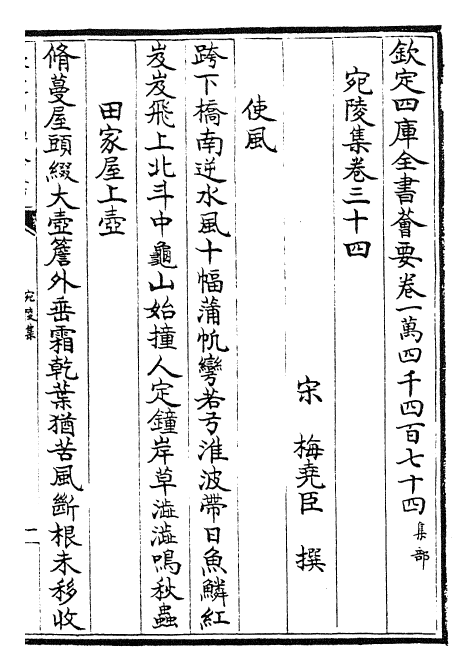 欽定四庫全書薈要卷一萬四千四百七十四 集部
宛陵集卷三十四
宋 梅堯臣 撰
使風
跨下橋南逆水風十幅蒲帆彎若弓淮波帶日魚鱗紅
岌岌飛上北斗中龜山始撞人定鐘岸草澁澁鳴秋蟲
田家屋上壺
脩蔓屋頭綴大壺簷外垂霜乾葉猶苦風斷根未移收
宛陵集
一